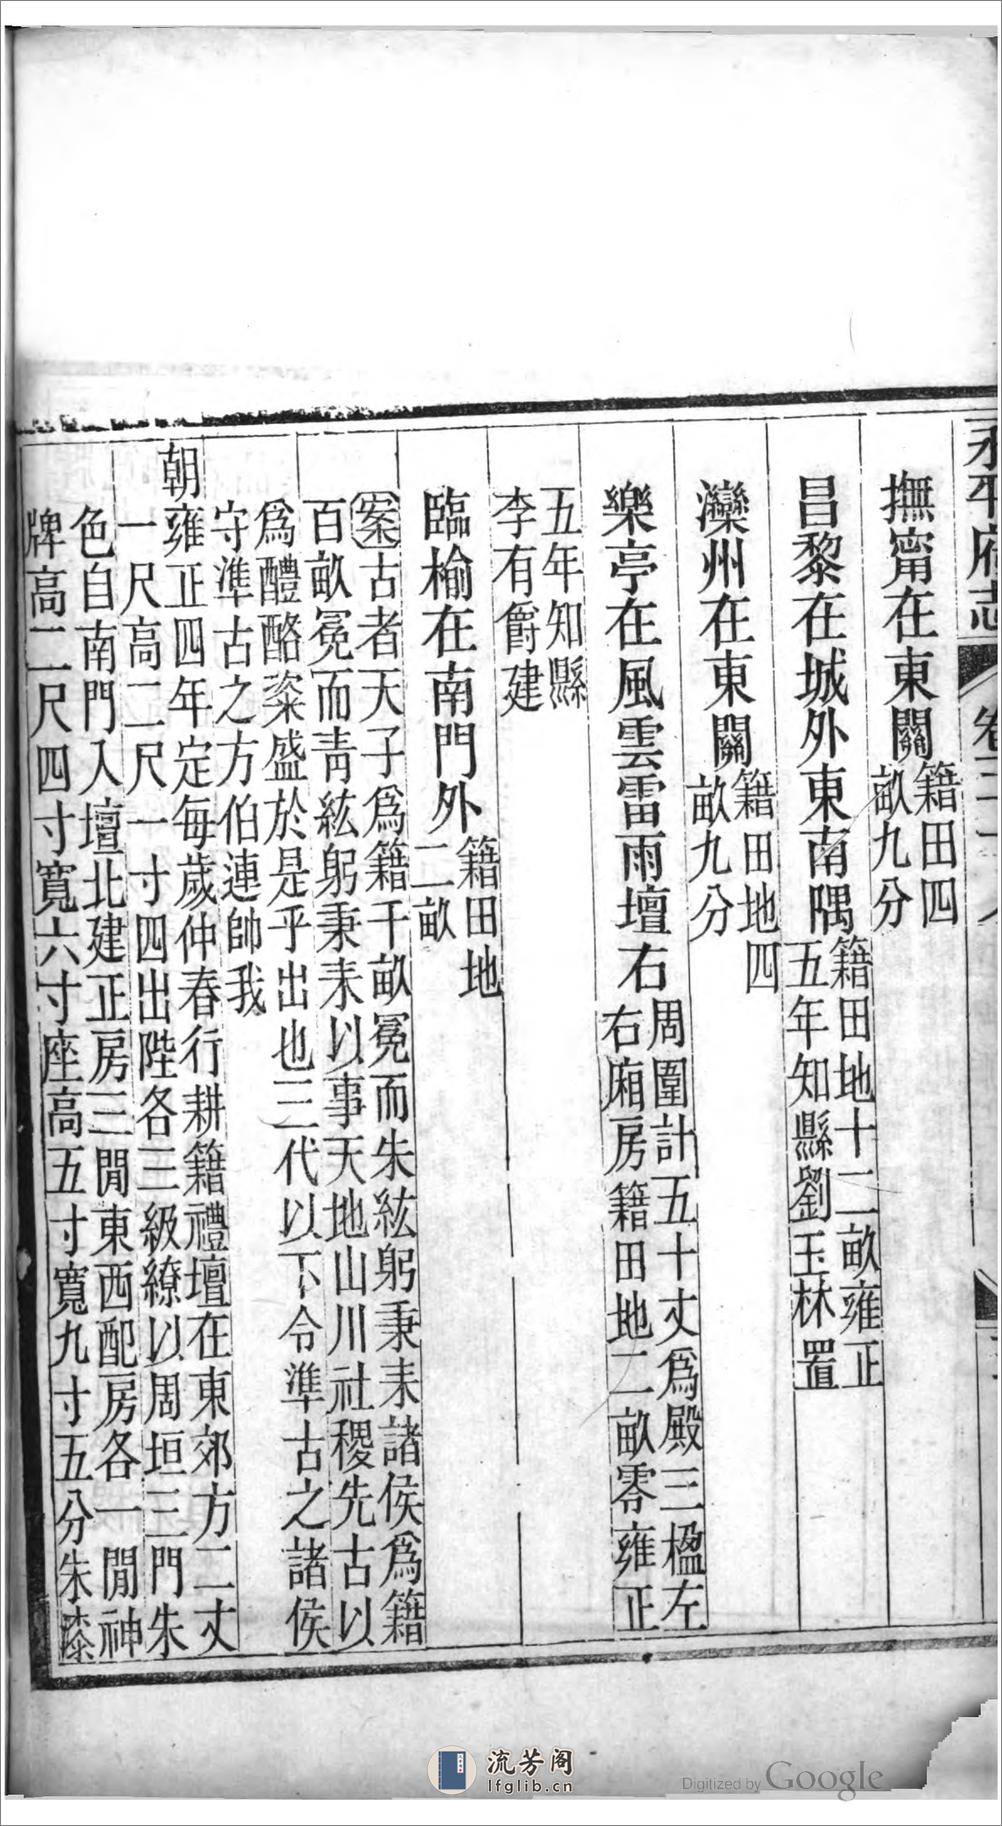 永平府志
卷三十八
撫甯在東關籍田四
畝九分
昌黎在城外東南隅籍田地十二畝雍正
五年知縣劉玉林置
灤州在東關籍田地四
畝九分
樂亭在風雲雷雨壇右周圍計五十丈爲殿三楹左
右廂房籍田地二畝零雍正
五年知縣
李有爵建
臨榆在南門外籍田地
二畝
案古者天子爲籍千畝冕而朱紘躬秉耒諸侯爲籍
百畝冕而靑紘躬秉耒以事天地山川社稷先古以
爲醴酪粢盛於是乎出也三代以下令準古之諸侯
守準古之方伯連帥我
朝雍正四年定每歲仲春行耕籍禮壇在東郊方二丈
一尺高二尺一寸四出陛各三級繚以周垣三門朱
色自南門入壇北建正房三閒東西配房各一閒神
牌高二尺四寸寬六寸座高五寸寬九寸五分朱漆
流芳阁
lfglib.cn
Digitized by Google